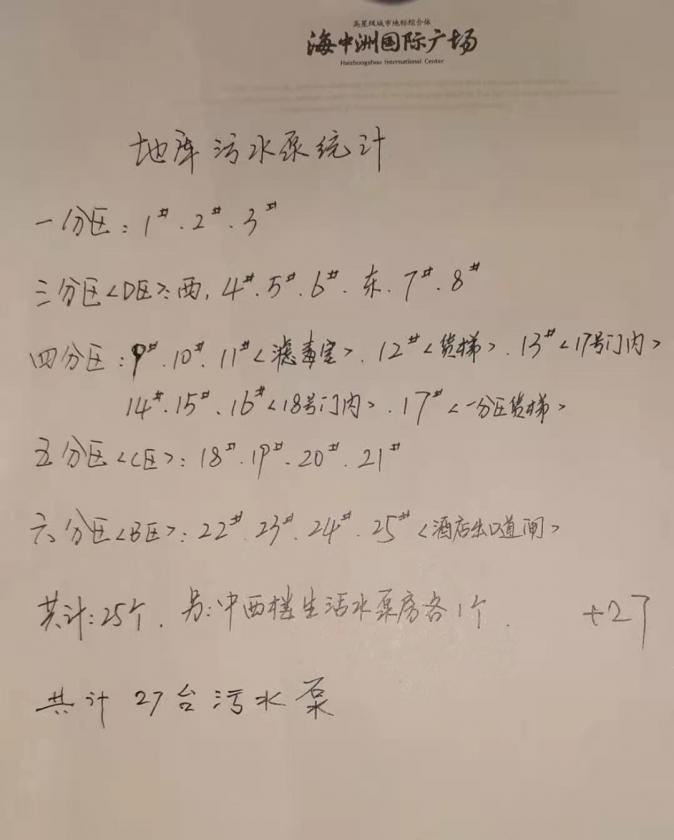 高星级城市地标综合体
海中洲国际广场
Haizhongzhou International Center
地库污水泵统计
一分区：1#.2#.3#
三分区<D区>：西，4#.5#.6#.东.7#.8#
四分区：9#.10#.11#<滤毒室>.12#<货梯>.13#<17号门内>
14#.15#.16#<18号门内>.17#<一分区货梯>
五分区<C区>：18#.19#.20#.21#
六分区<B区>：22#.23#.24#.25#<酒店出口道闸>
共计：25个.另：中西楼生活水泵房各1个. +2个
共计27台污水泵